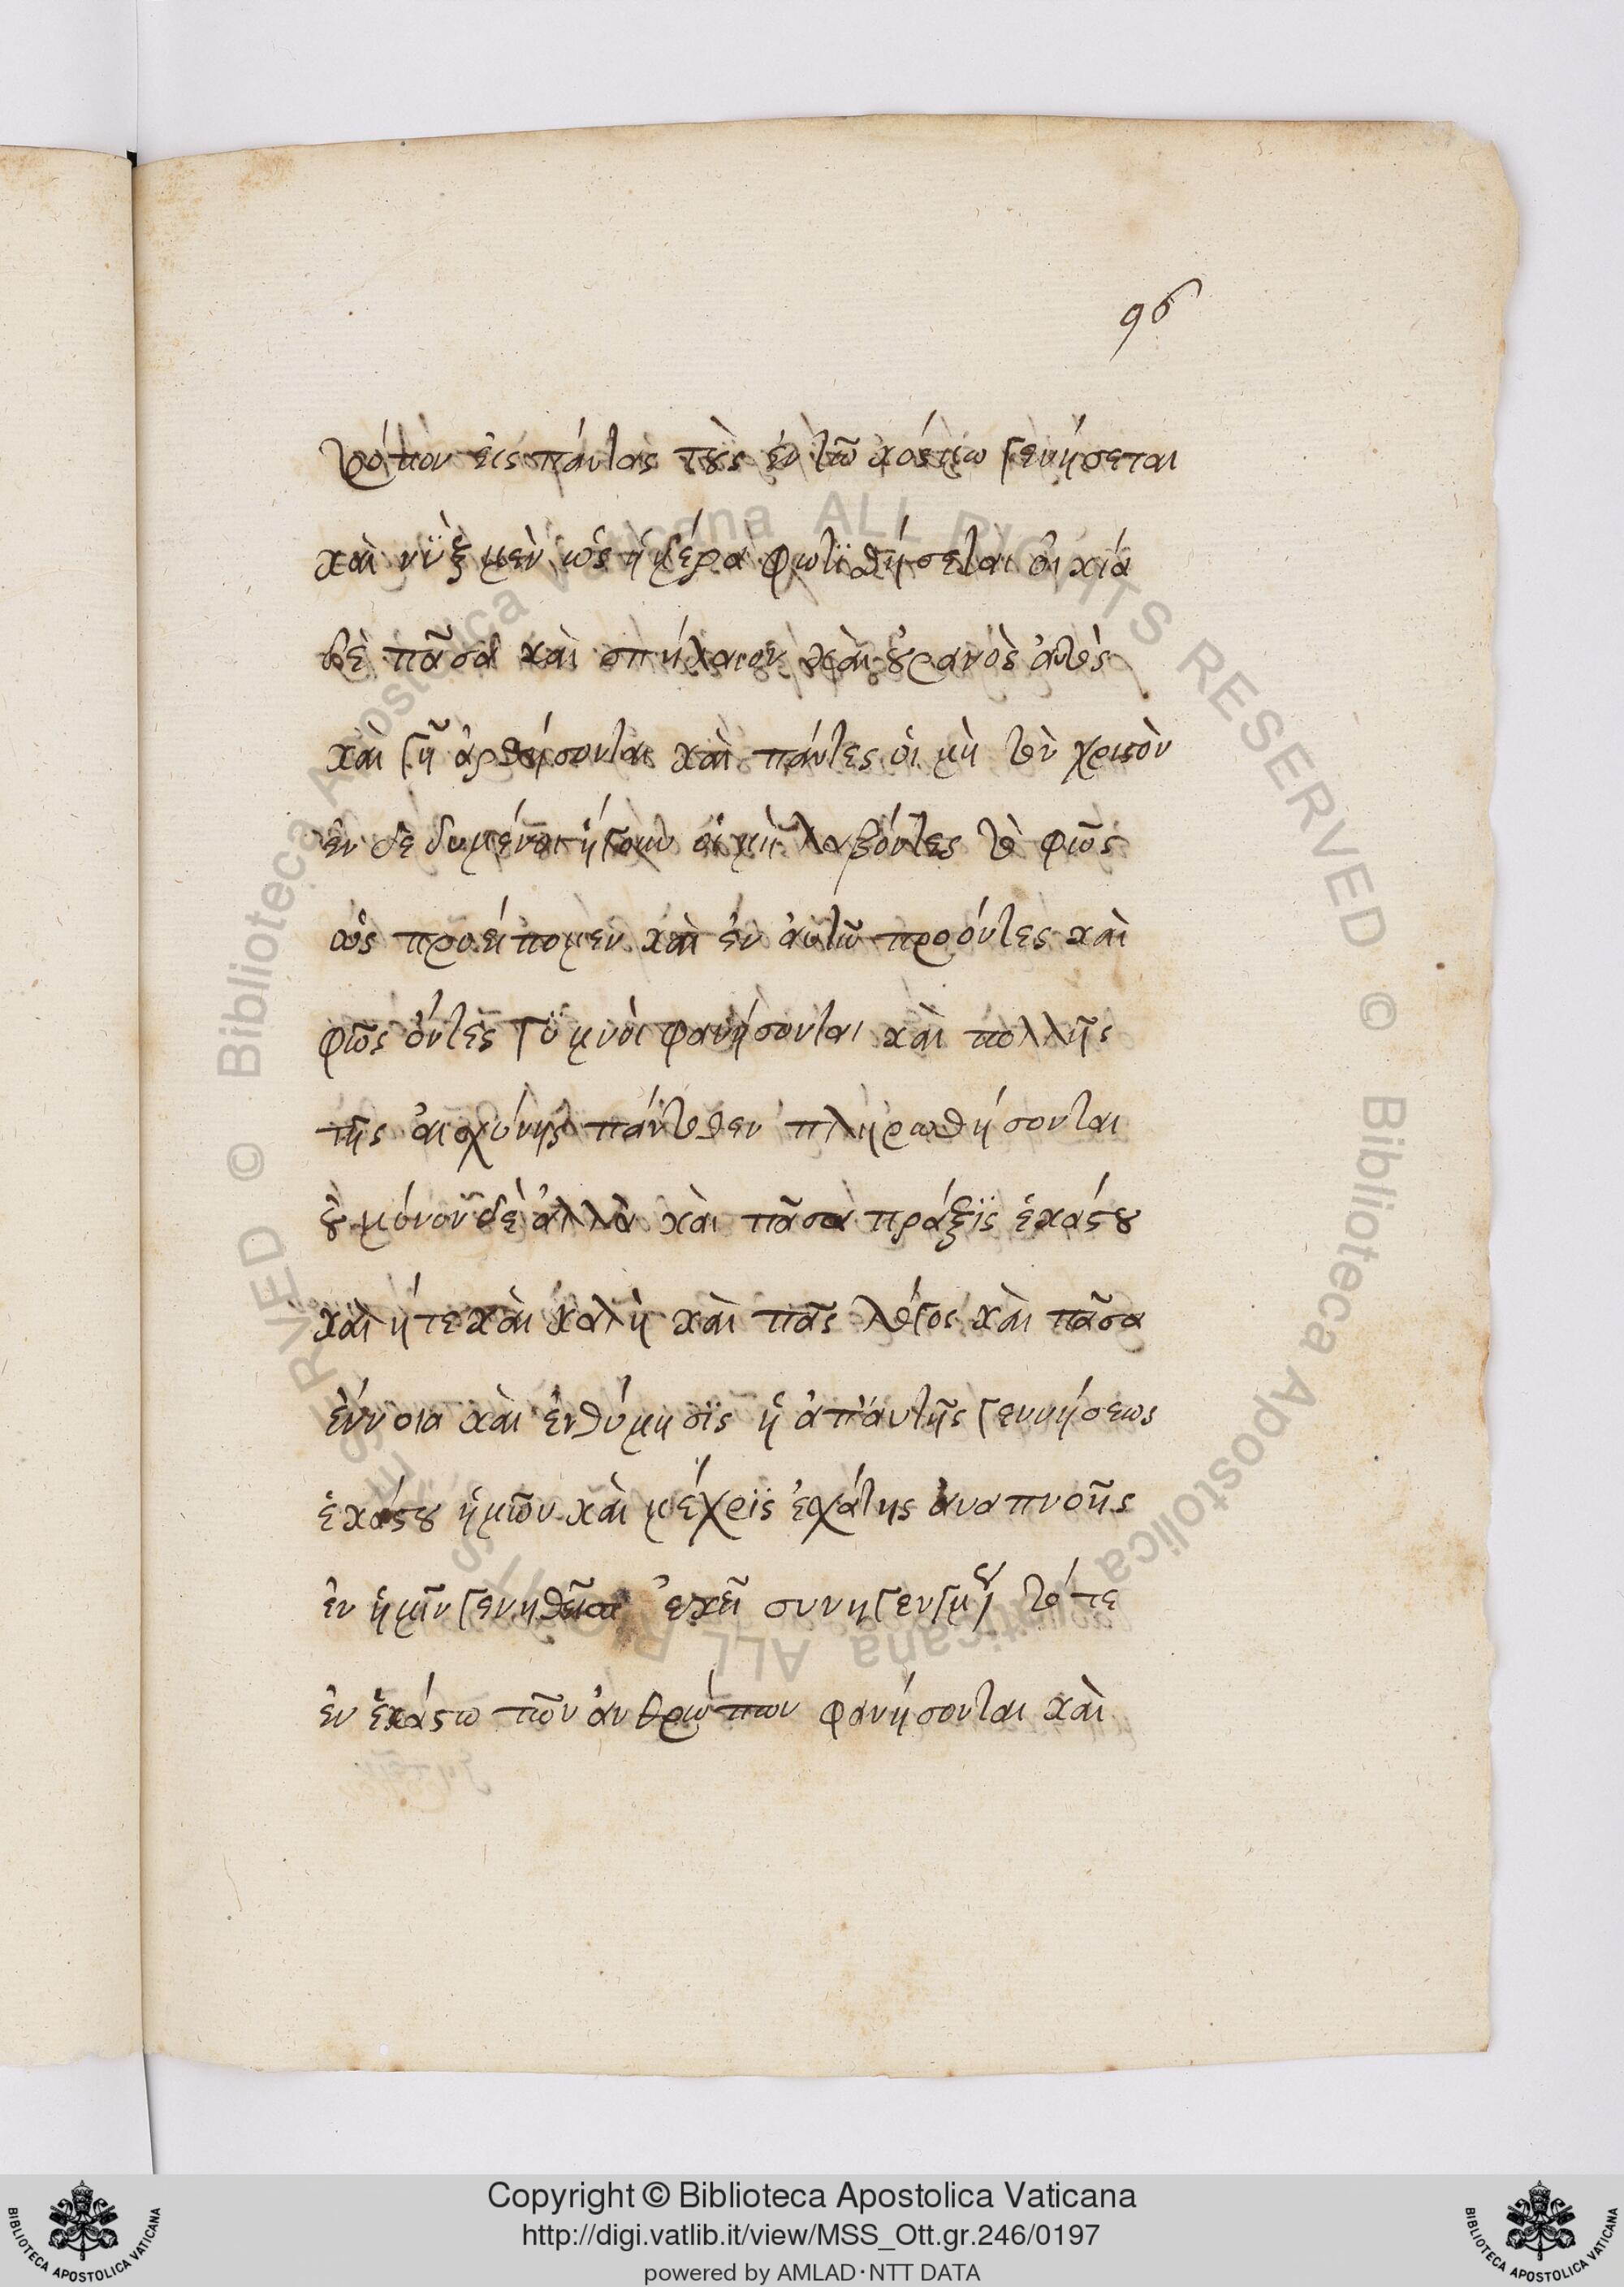 96
τρόπον εἰς πάντας τοὺς ἐν τῶ κόσμω γενήσεται
καὶ νὺξ μὲν ὡς ἡμέρα φωτϊσθήσεται οἰκία
δὲ πᾶσα καὶ σπήλαιον καὶ οὐρανὸς ἀυτὸς
καὶ γῆ ἀρθήσονται καὶ πάντες οἱ μὴ τὸν χριστὸν
ἐνδεδυμένοι ἤγουν οἱ μὴ λαβόντες τὸ φῶς
ὡς προείπομεν καὶ ἐν ἀυτῶ προόντες καὶ
φῶς ὄντες γϋμνοὶ φανήσονται καὶ πολλῆς
τῆς αἰσχύνης πάντοθεν πληρωθήσονται
οὐ μόνον δὲ ἀλλὰ καὶ πᾶσα πράξϊς ἑκάστου
καλήτε καὶ κακὴ καὶ πᾶς λόγος καὶ πᾶσα
ἔννοια καὶ ἐνθύμησϊς ἡ ἀπ' ἀυτῆς γεννήσεως
ἑκάστου ἡμῶν καὶ μέχρϊς ἐσχάτης ἀναπνοῆς
ἐν ἡμῖν γενηθεῖσα ἐκεῖ τότε
ἐν ἑκάστω τῶν ἀνθρώπων φανήσονται καὶ
© Biblioteca Apostolica Vaticana ALL RIGHTS RESERVED © Biblioteca Apostolica Vaticana ALL RIGHTS RESERVED
Copyright © Biblioteca Apostolica Vaticana
http://digi.vatlib.it/view/MSS_Ott.gr.246/0197
powered by AMLAD·NTT DATA
BIBLIOTECA APOSTOLICA VATICANA
BIBLIOTECA APOSTOLICA VATICANA